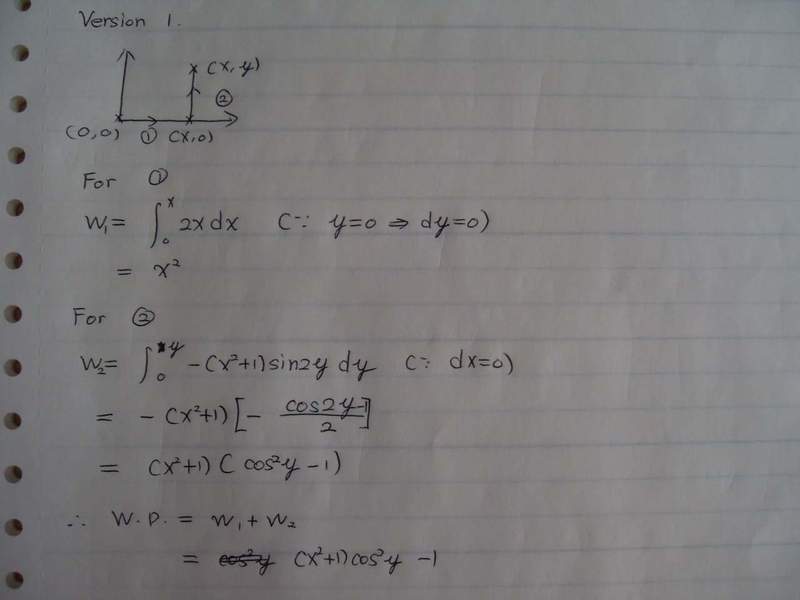 Version 1.
(x, y)
②
(0,0) ① (x,0)
For ①
W₁= ∫₀ˣ 2x dx (∵ y=0 ⇒ dy=0)
= x²
For ②
W₂= ∫₀ʸ -(x²+1) sin2y dy (∵ dx=0)
= -(x²+1) [- (cos2y-1)/2]
= (x²+1) (cos²y -1)
∴ W.D. = W₁ + W₂
= cos²y (x²+1) cos²y -1